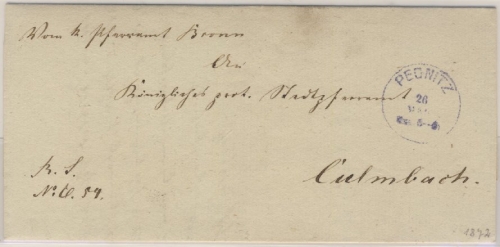 Vom k. Pfarramt Bronn
An
Königliches prot. Stadtpfarramt
PEGNITZ
26
Culmbach.
R. S.
No. 57.
1872